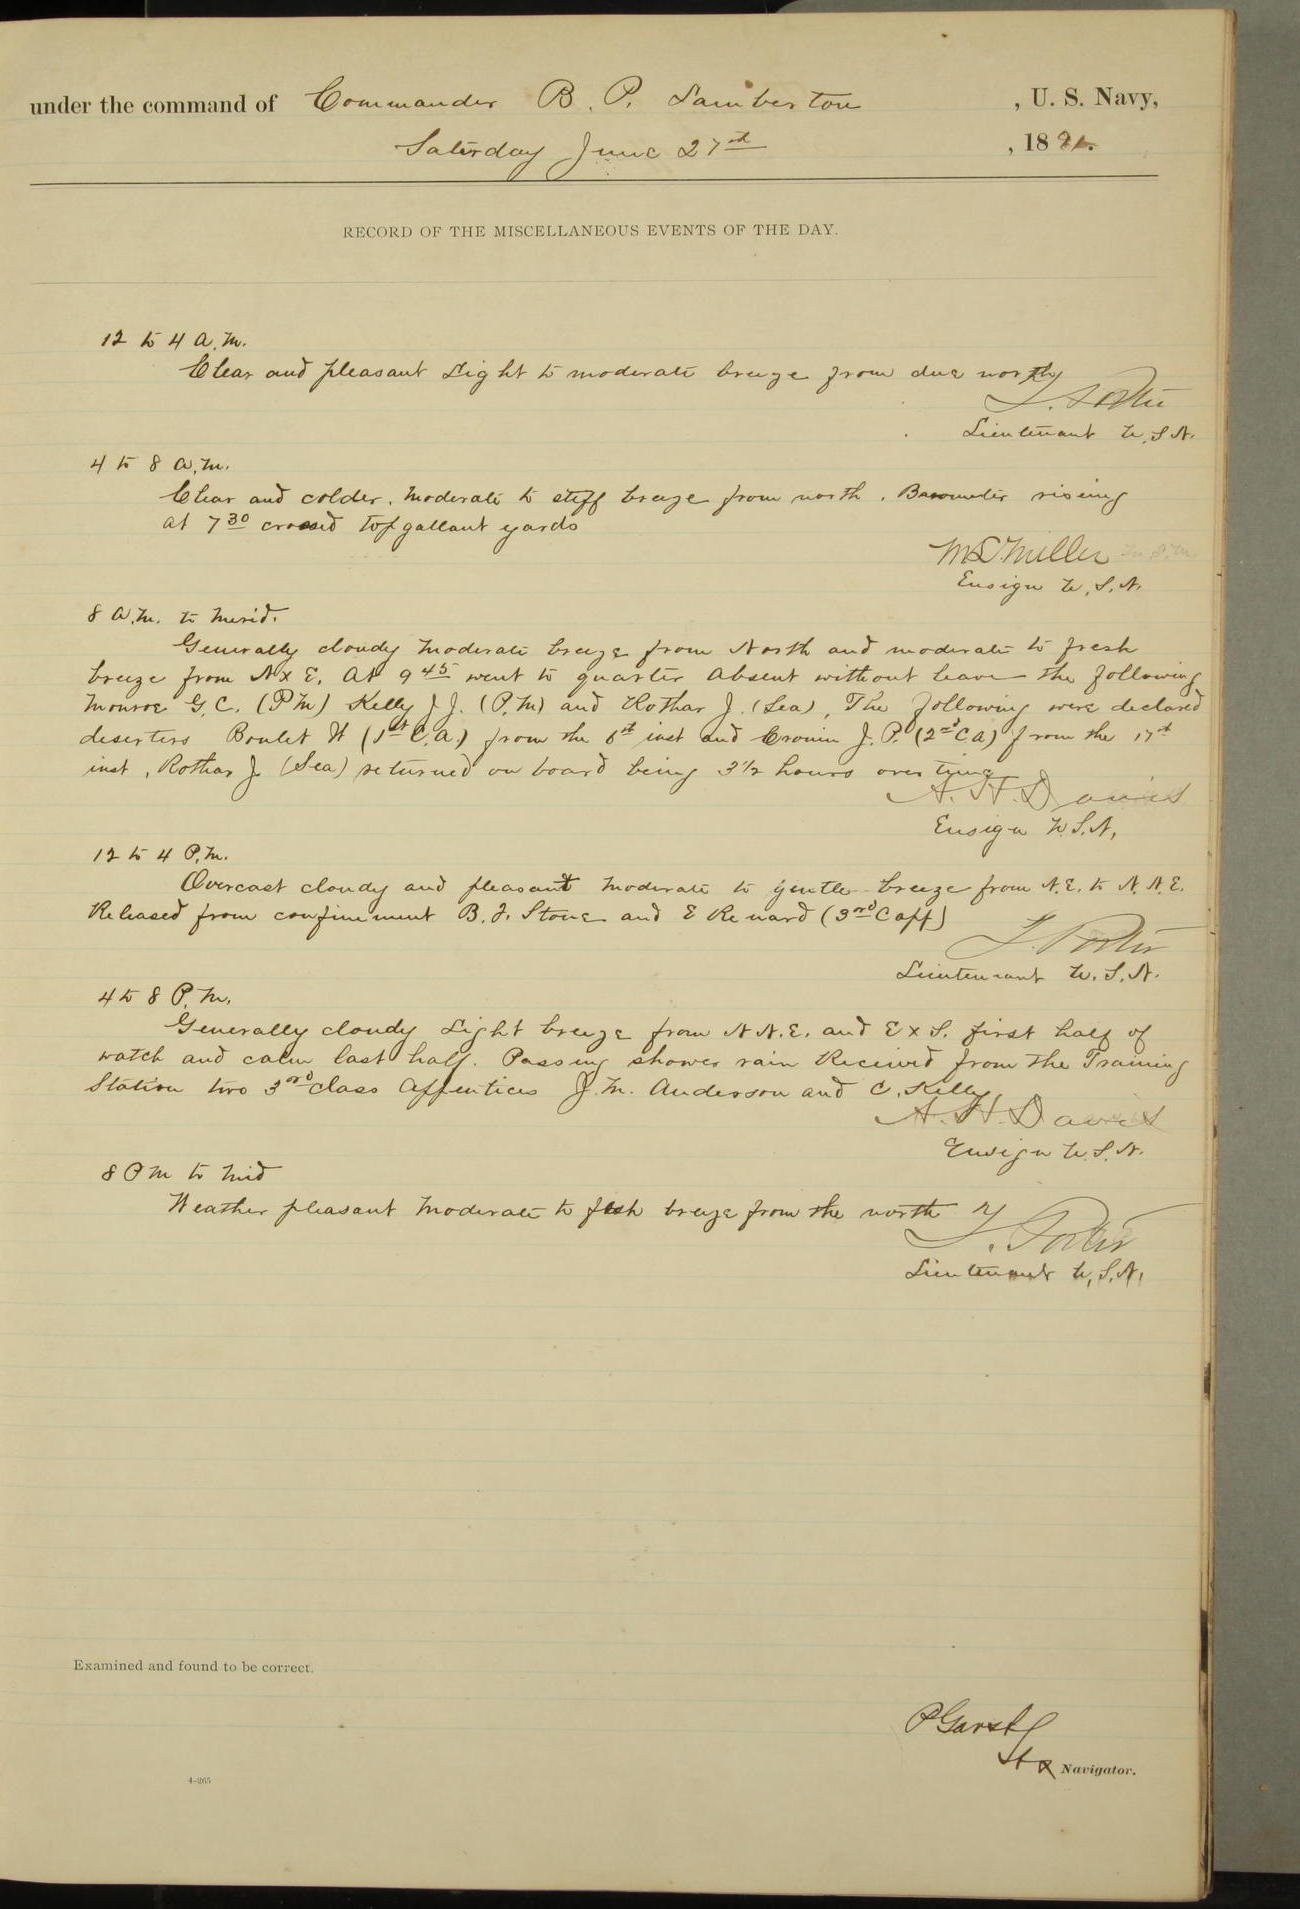 under the command of Commander B. P. Lamberton , U. S. Navy,
Saturday June 27th , 1891.
RECORD OF THE MISCELLANEOUS EVENTS OF THE DAY.
12 to 4 A.M.
Clear and pleasant Light to moderate breeze from due north
T. Porter
Lieutenant U.S.N.
4 to 8 A.M.
Clear and colder. Moderate to stiff breeze from north. Barometer rising
At 7 30 crossed topgallant yards
M. Miller
Ensign U.S.N.
8 A.M. to Merid.
Generally cloudy Moderate breeze from North and moderate to fresh
breeze from N x E. At 9 45 went to quarter Absent without leave the following
Monroe G.C. (P.M) Kelly J.J. (P.M) and Rothar J. (Sea), The following were declared
deserters Boulet W (1st C.A.) from the 6st inst and Cronin J.P. (2nd C A) from the 17st
inst, Rothar J. (Sea) returned on board being 3 1/2 hours over time
A. H. Davis
Ensign U.S.N.
12 to 4 P.M.
Overcast cloudy and pleasant Moderate to gentle breeze from N.E. to N.N.E.
Released from confinement B.F. Stone and E Renard (3rd C app)
T. Porter
Lieutenant U.S.N.
4 to 8 P.M.
Generally cloudy Light breeze from N N.E. and E x S. first half of
watch and calm last half. Passing shower rain Received from the Training
Station two 3rd Class Apprentices J. M. Anderson and C. Kelly
A. H. Davis
Ensign U.S.N.
8 P M to Mid
Weather pleasant Moderate to fresh breeze from the north
T. Porter
Lieutenant U.S.N.
Examined and found to be correct.
P Garst
Navigator.
4-265